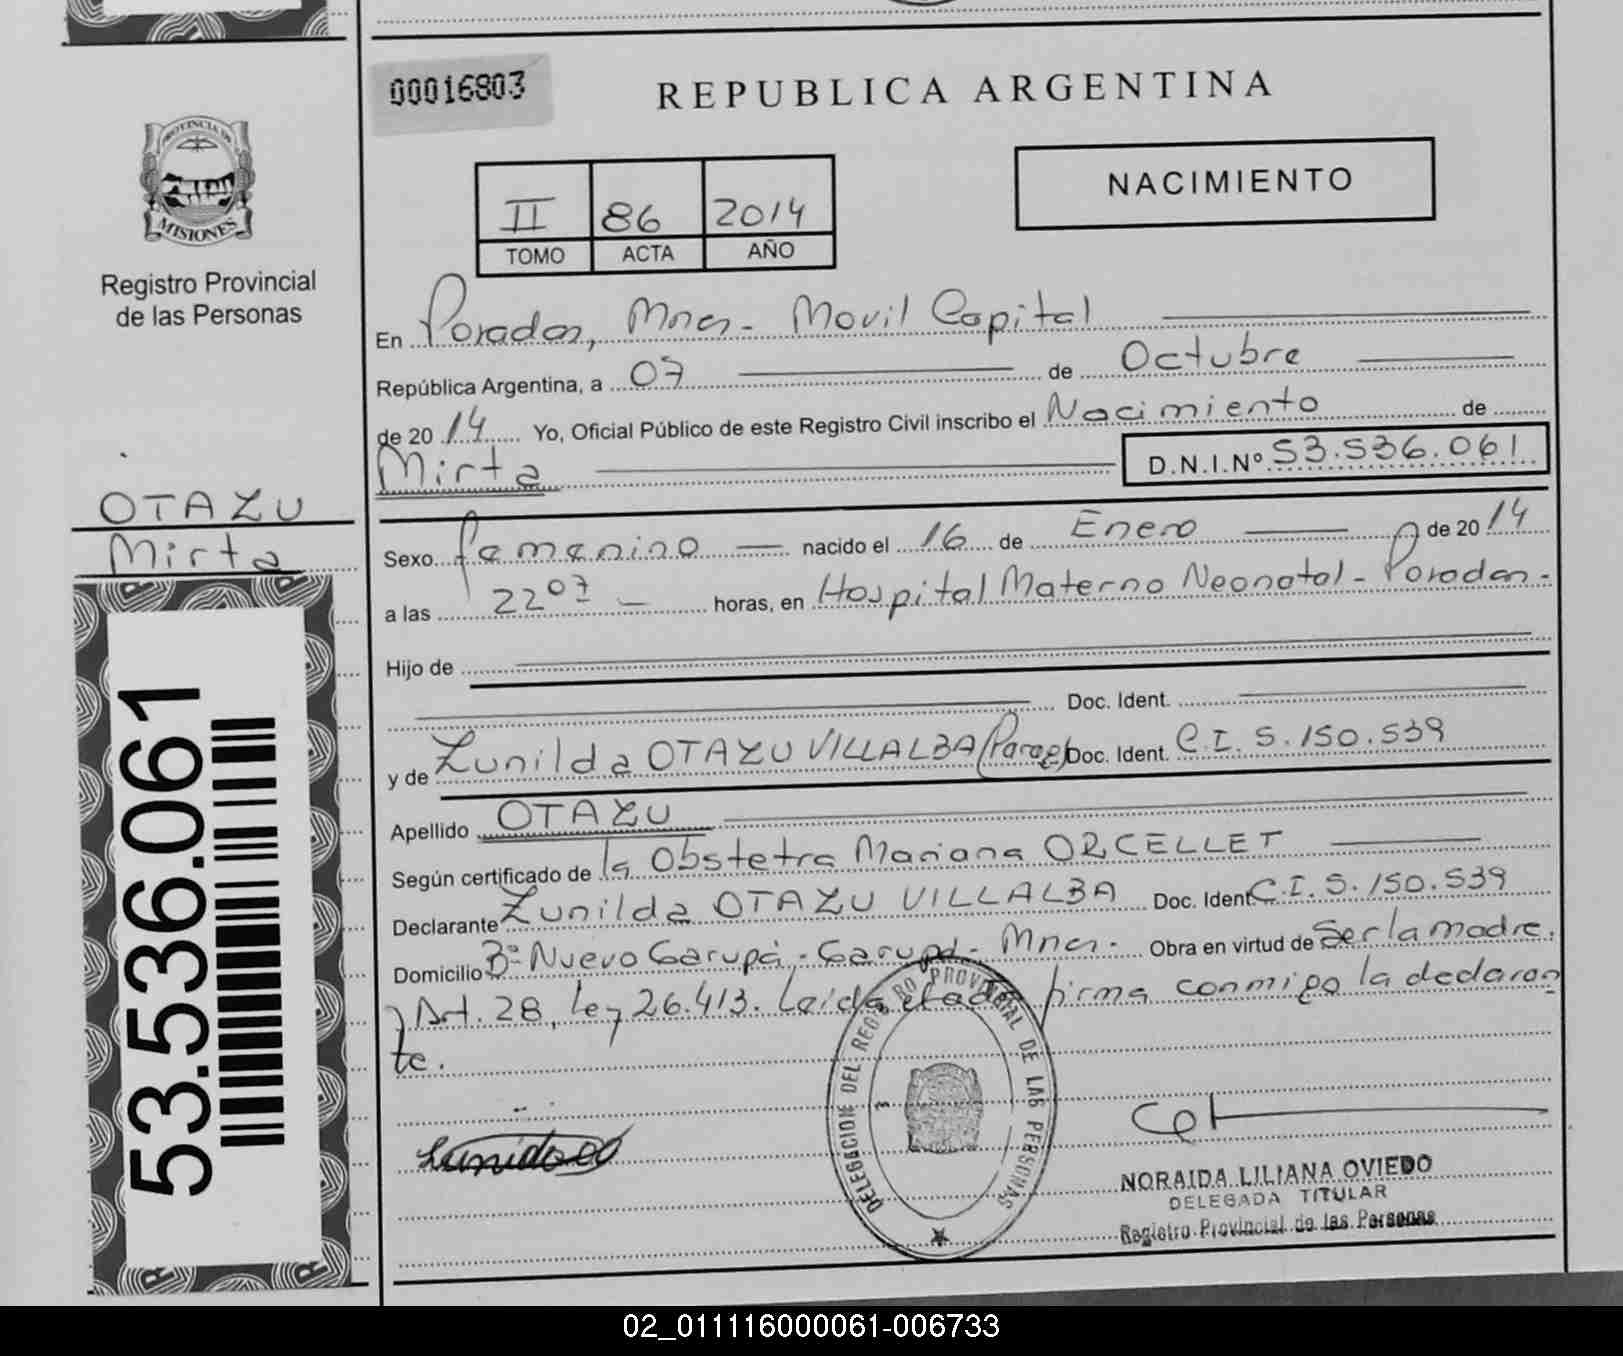 00016803
REPUBLICA ARGENTINA
NACIMIENTO
II 86 2014
TOMO ACTA AÑO
PROVINCIA DE
MISIONES
Registro Provincial
de las Personas
En Posadas, Mnes. Movil Capital
República Argentina, a 07 de Octubre
de 2014 Yo, Oficial Público de este Registro Civil inscribo el Nacimiento de
Mirta D.N.I.Nº 53.536.061
OTAZU
Mirta
Sexo femenino nacido el 16 de Enero de 2014
a las 22 07 horas, en Hospital Materno Neonatal - Posadas -
Hijo de
Doc. Ident.
y de Zunilda OTAZU VILLALBA (Parag) Doc. Ident. C.I. 5.150.539
Apellido OTAZU
Según certificado de la Obstetra Mariana ORCELLET
Declarante Zunilda OTAZU VILLALBA Doc. Ident C.I. 5.150.539
Domicilio Bº Nuevo Garupá - Garupá - Mnes. Obra en virtud de Ser la madre.
y Art. 28, Ley 26.413. Leída el acta firma conmigo la declaran
te.
53.536.061
DELEGACION DEL REGISTRO PROVINCIAL DE LAS PERSONAS
NORAIDA LILIANA OVIEDO
DELEGADA TITULAR
Registro Provincial de las Personas
02_011116000061-006733